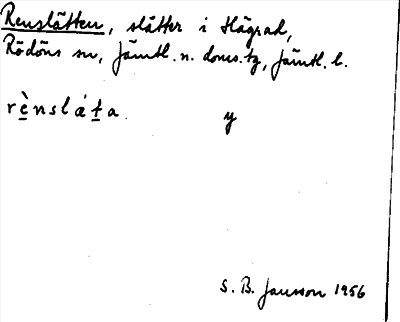 Renslåtten, slåtter i Hägrad,
Rödöns sn, Jämtl. n. doms.tg, Jämtl. l.
rènsláta. y
S. B. Jansson 1956